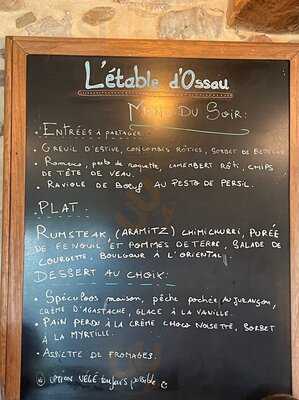 L'étable d'Ossau
Menu du Soir:
. Entrées à partager
. Greuil d'estive, concombres rôties, sorbet de
. Romaine, pesto de roquette, camembert rôti, chips
de tête de veau.
. Raviole de Boeuf au pesto de persil.
. Plat:
Rumsteak, (Aramitz) chimichurri, purée
de fenouil et pommes de terre, salade de
courgette, boulgour à l'oriental.
Dessert au choix:
. Spéculoos maison, pêche pochée au Jurançon,
crème d'agastache, glace à la vanille.
. Pain perdu à la crème choco noisette, sorbet
à la myrtille.
. Assiette de fromages.
option végé toujours possible